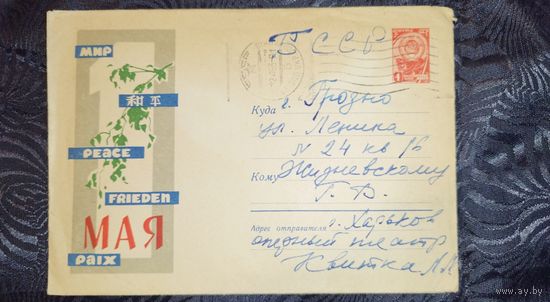 МИР
和平
PEACE
FRIEDEN
1 МАЯ
PAIX
БССР
Куда г. Гродно
ул. Ленина
N 24 кв 16
Кому Жидневскому
Г. В.
Адрес отправителя г. Харьков
оперный театр
Квитка
4
www.ay.by